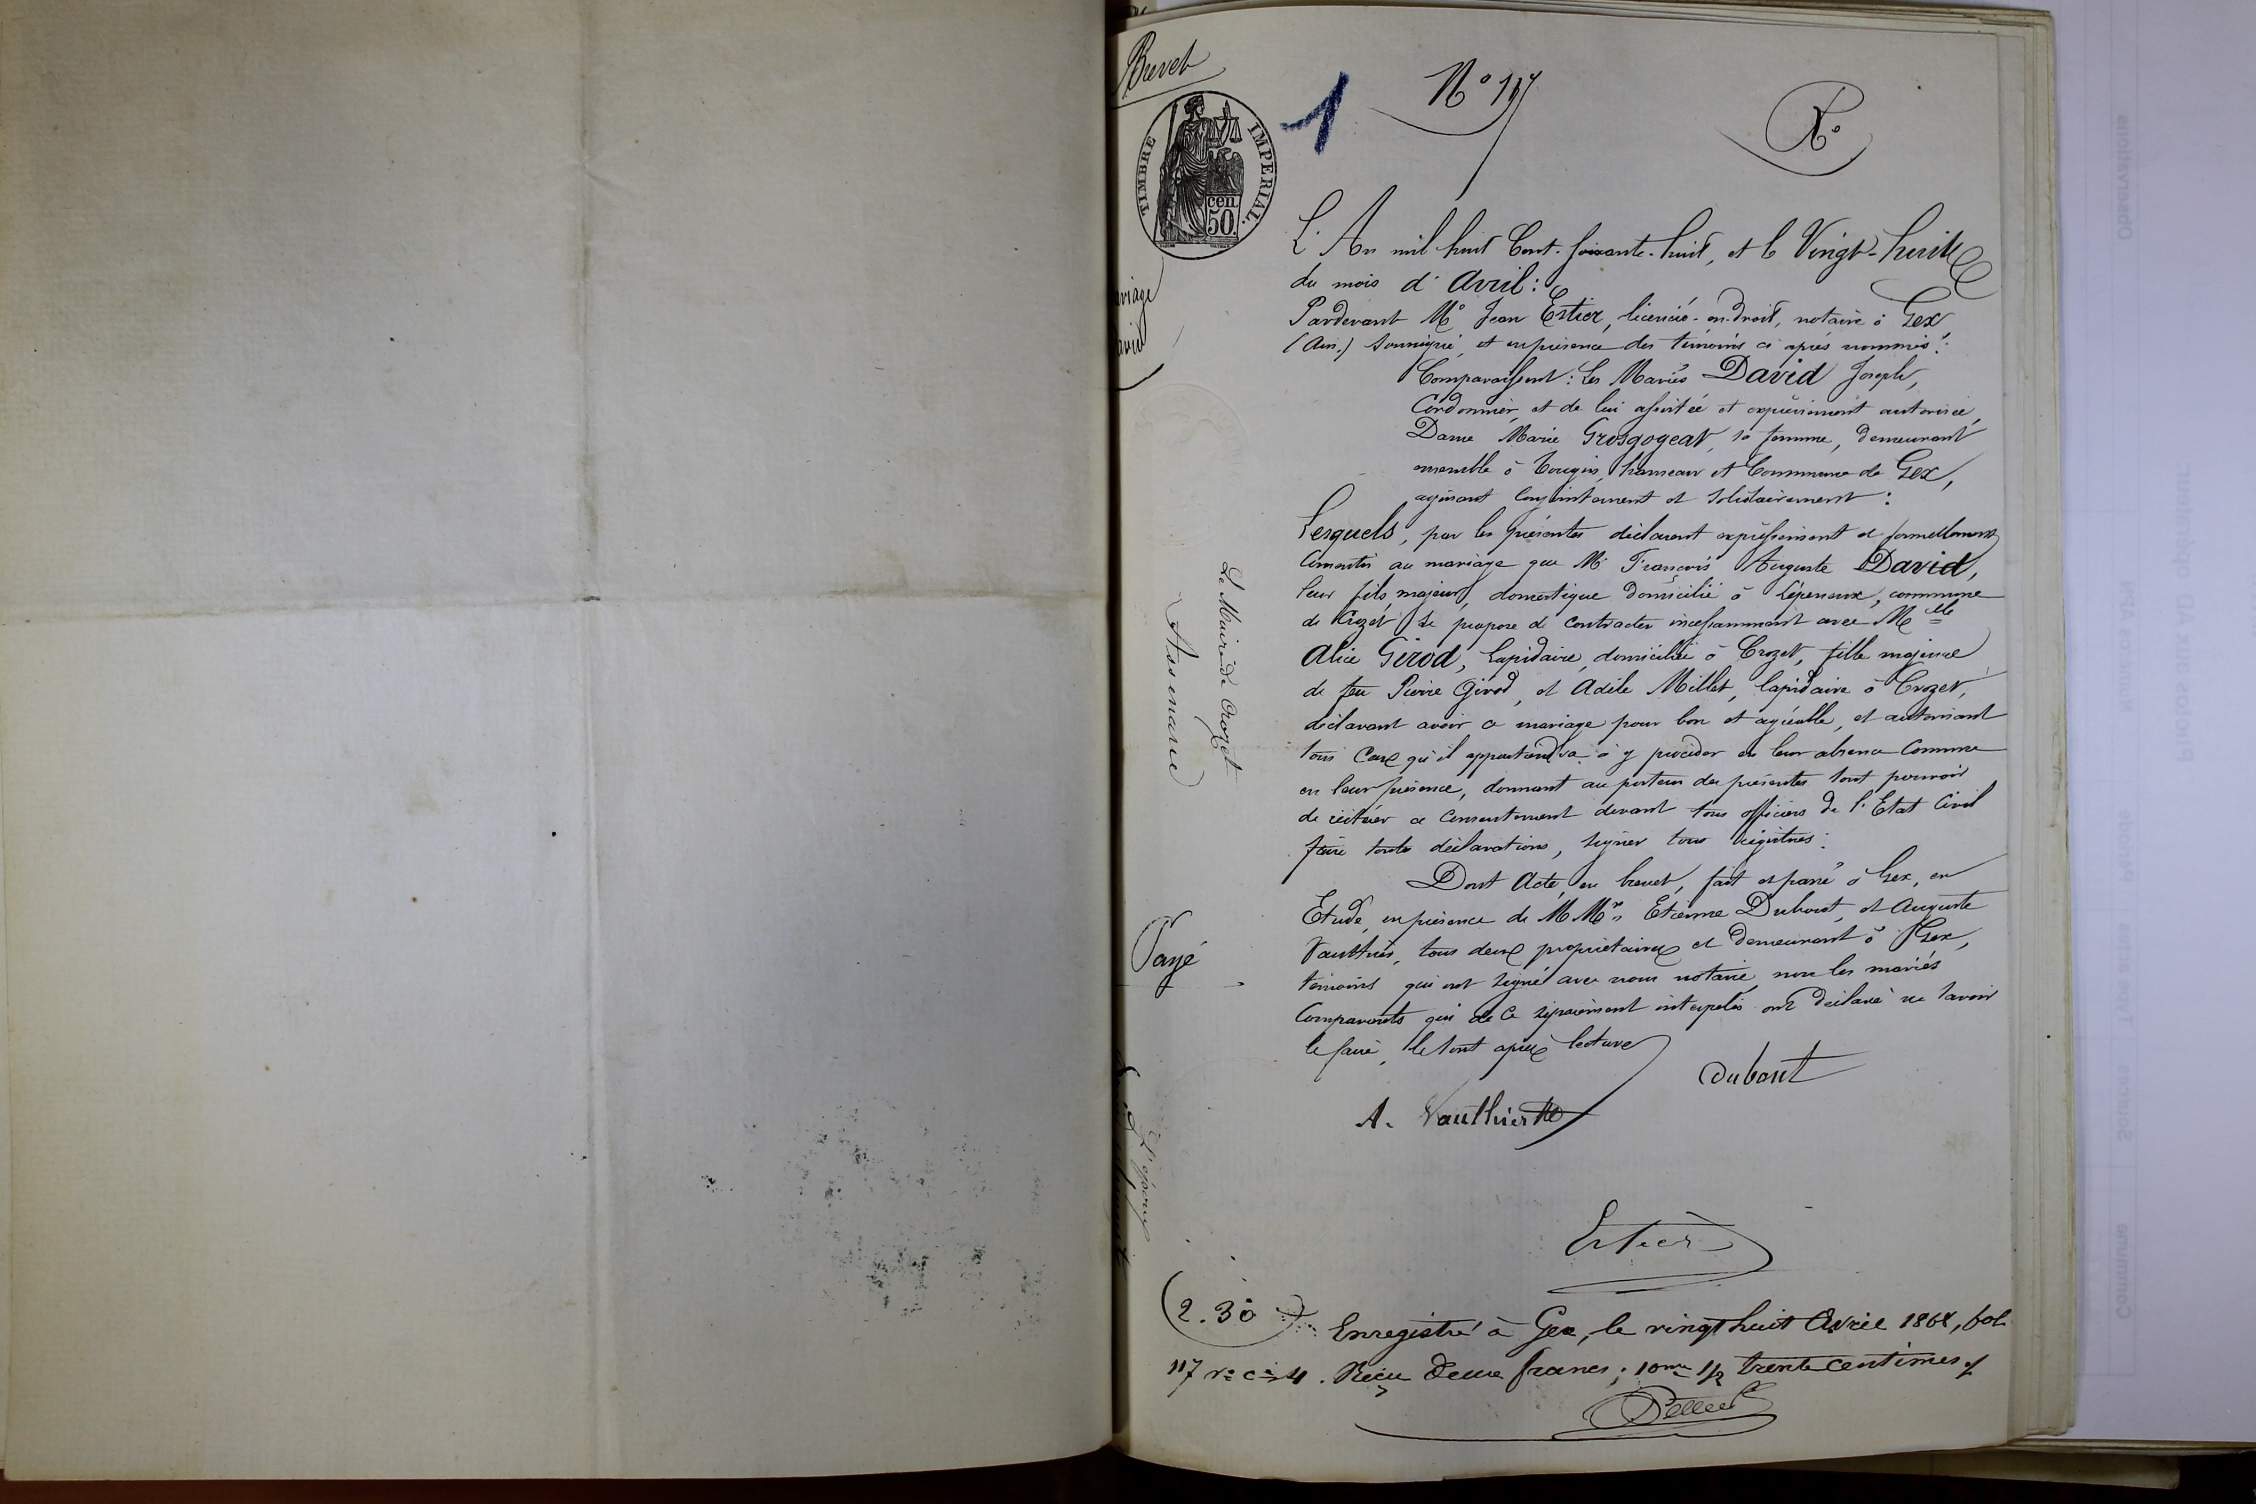 Brevet
1
N° 117
R°
TIMBRE IMPERIAL.
cen
50.
L'An mil huit Cent-soixante-huit, et le Vingt-huit
du mois d'Avril:
Pardevant Me Jean Estier, licencié-en-droit, notaire à Gex
(Ain.) soussigné, et en présence des témoins ci après nommés:
Comparaissent: Les Mariés David Joseph,
Cordonnier, et de lui assistée et expressément autorisée,
Dame Marie Grosgogeat, sa femme, demeurant
ensemble à Tougin, hameau et Commune de Gex,
agissant conjointement et solidairement:
Lesquels, par les présentes déclarent expressément et formellement
Consentir au mariage que Mr François Auguste David,
leur fils majeur, domestique domicilié à Lépeneux, commune
de Crozet se propose de contracter incessamment avec Melle
Alice Girod, lapidaire, domiciliée à Crozet, fille majeure
de feu Pierre Girod, et Adèle Millet, lapidaire à Crozet,
déclarant avoir ce mariage pour bon et agréable, et autorisant
tous Ceux qu'il appartiendra à y procéder en leur absence Comme
en leur présence, donnant au porteur des présentes tout pouvoir
de réitérer ce consentement devant tous officiers de l'Etat Civil
faire toutes déclarations, signer tous registres:
Dont Acte, en brevet, fait et passé à Gex, en
Etude, en présence de MMrs Etienne Dubout, et Auguste
Vauthier, tous deux propriétaires et demeurant à Gex,
témoins qui ont signé avec nous notaire, non les mariés
Comparants qui de ce séparément interpelés ont déclaré ne savoir
le faire, le tout après lecture
Dubout
A. Vauthier
Estier
(2.30)
Enregistré à Gex, le vingt huit Avril 1868, fol
117 r° c° 4. Reçu deux francs; 10me 1/2 trente centimes
Pellet
Le Maire de Crozet
Payé